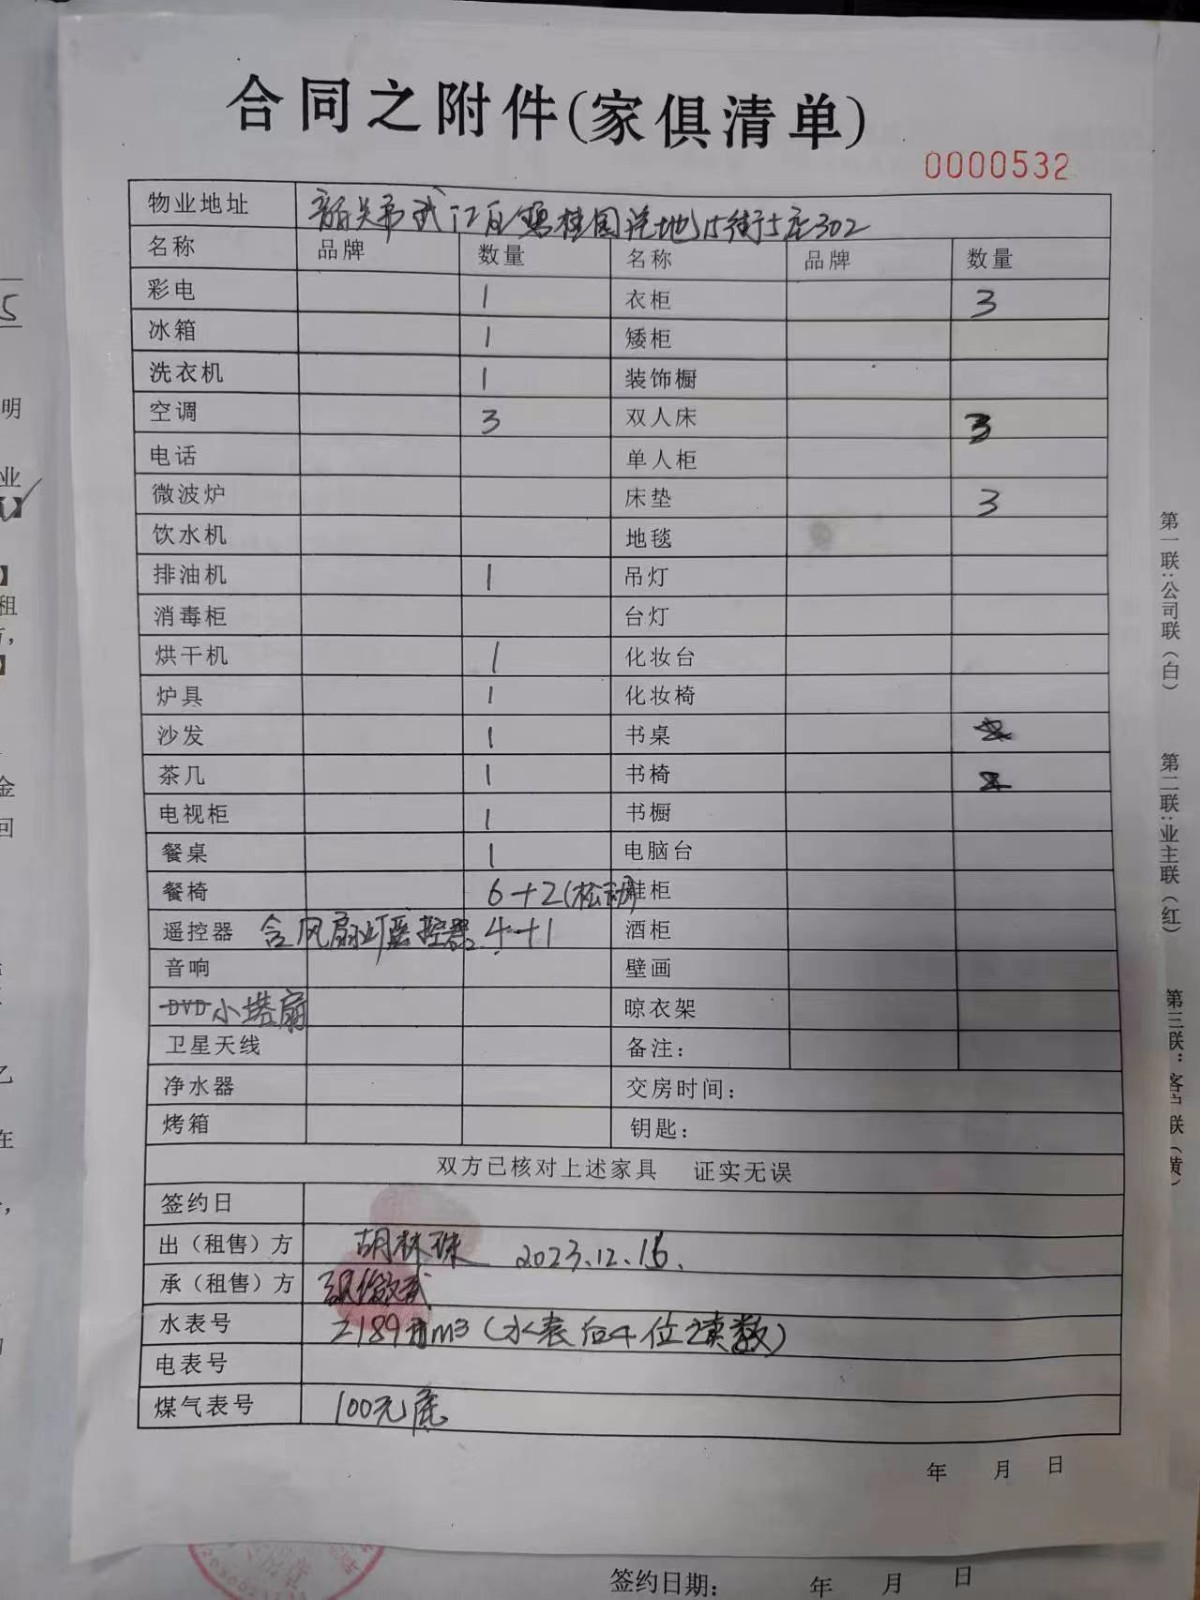 合同之附件(家俱清单)
0000532
物业地址 韶关市武江区碧桂园 15街5座302
名称 品牌 数量 名称 品牌 数量
彩电 1 衣柜 3
冰箱 1 矮柜
洗衣机 1 装饰橱
空调 3 双人床 3
电话 单人柜
微波炉 床垫 3
饮水机 地毯
排油机 1 吊灯
消毒柜 台灯
烘干机 1 化妆台
炉具 1 化妆椅
沙发 1 书桌
茶几 1 书椅
电视柜 1 书橱
餐桌 1 电脑台
餐椅 6+2(松动) 鞋柜
遥控器 含风扇灯遥控器 4+1 酒柜
音响 壁画
DVD 小塔扇 晾衣架
卫星天线 备注：
净水器 交房时间：
烤箱 钥匙：
双方已核对上述家具 证实无误
签约日
出（租售）方 胡林珠 2023.12.16.
承（租售）方
水表号 2189 m3（水表后4位读数）
电表号
煤气表号 100元底
年 月 日
第一联:公司联（白） 第二联:业主联（红） 第三联：客户联（黄）
签约日期： 年 月 日
5
明
业
】
租
】
金
回
乙
在